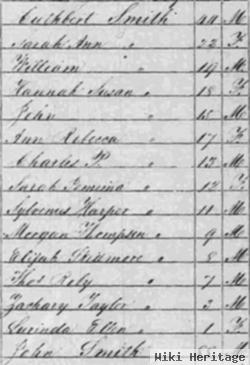 Cuthbert Smith 44 M
Sarah Ann " 22 F
William " 19 M
Hannah Susan " 18 F
John " 15 M
Ann Rebecca " 17 F
Charles P. " 13 M
Sarah Jemima " 12 F
Sylvenus Harper " 11 M
Morgan Thompson " 9 M
Elijah Skidmore " 8 M
Thos Roly " 7 M
Zachary Taylor " 3 M
Lucinda Ellen " 1 F
John Smith M
Wiki Heritage